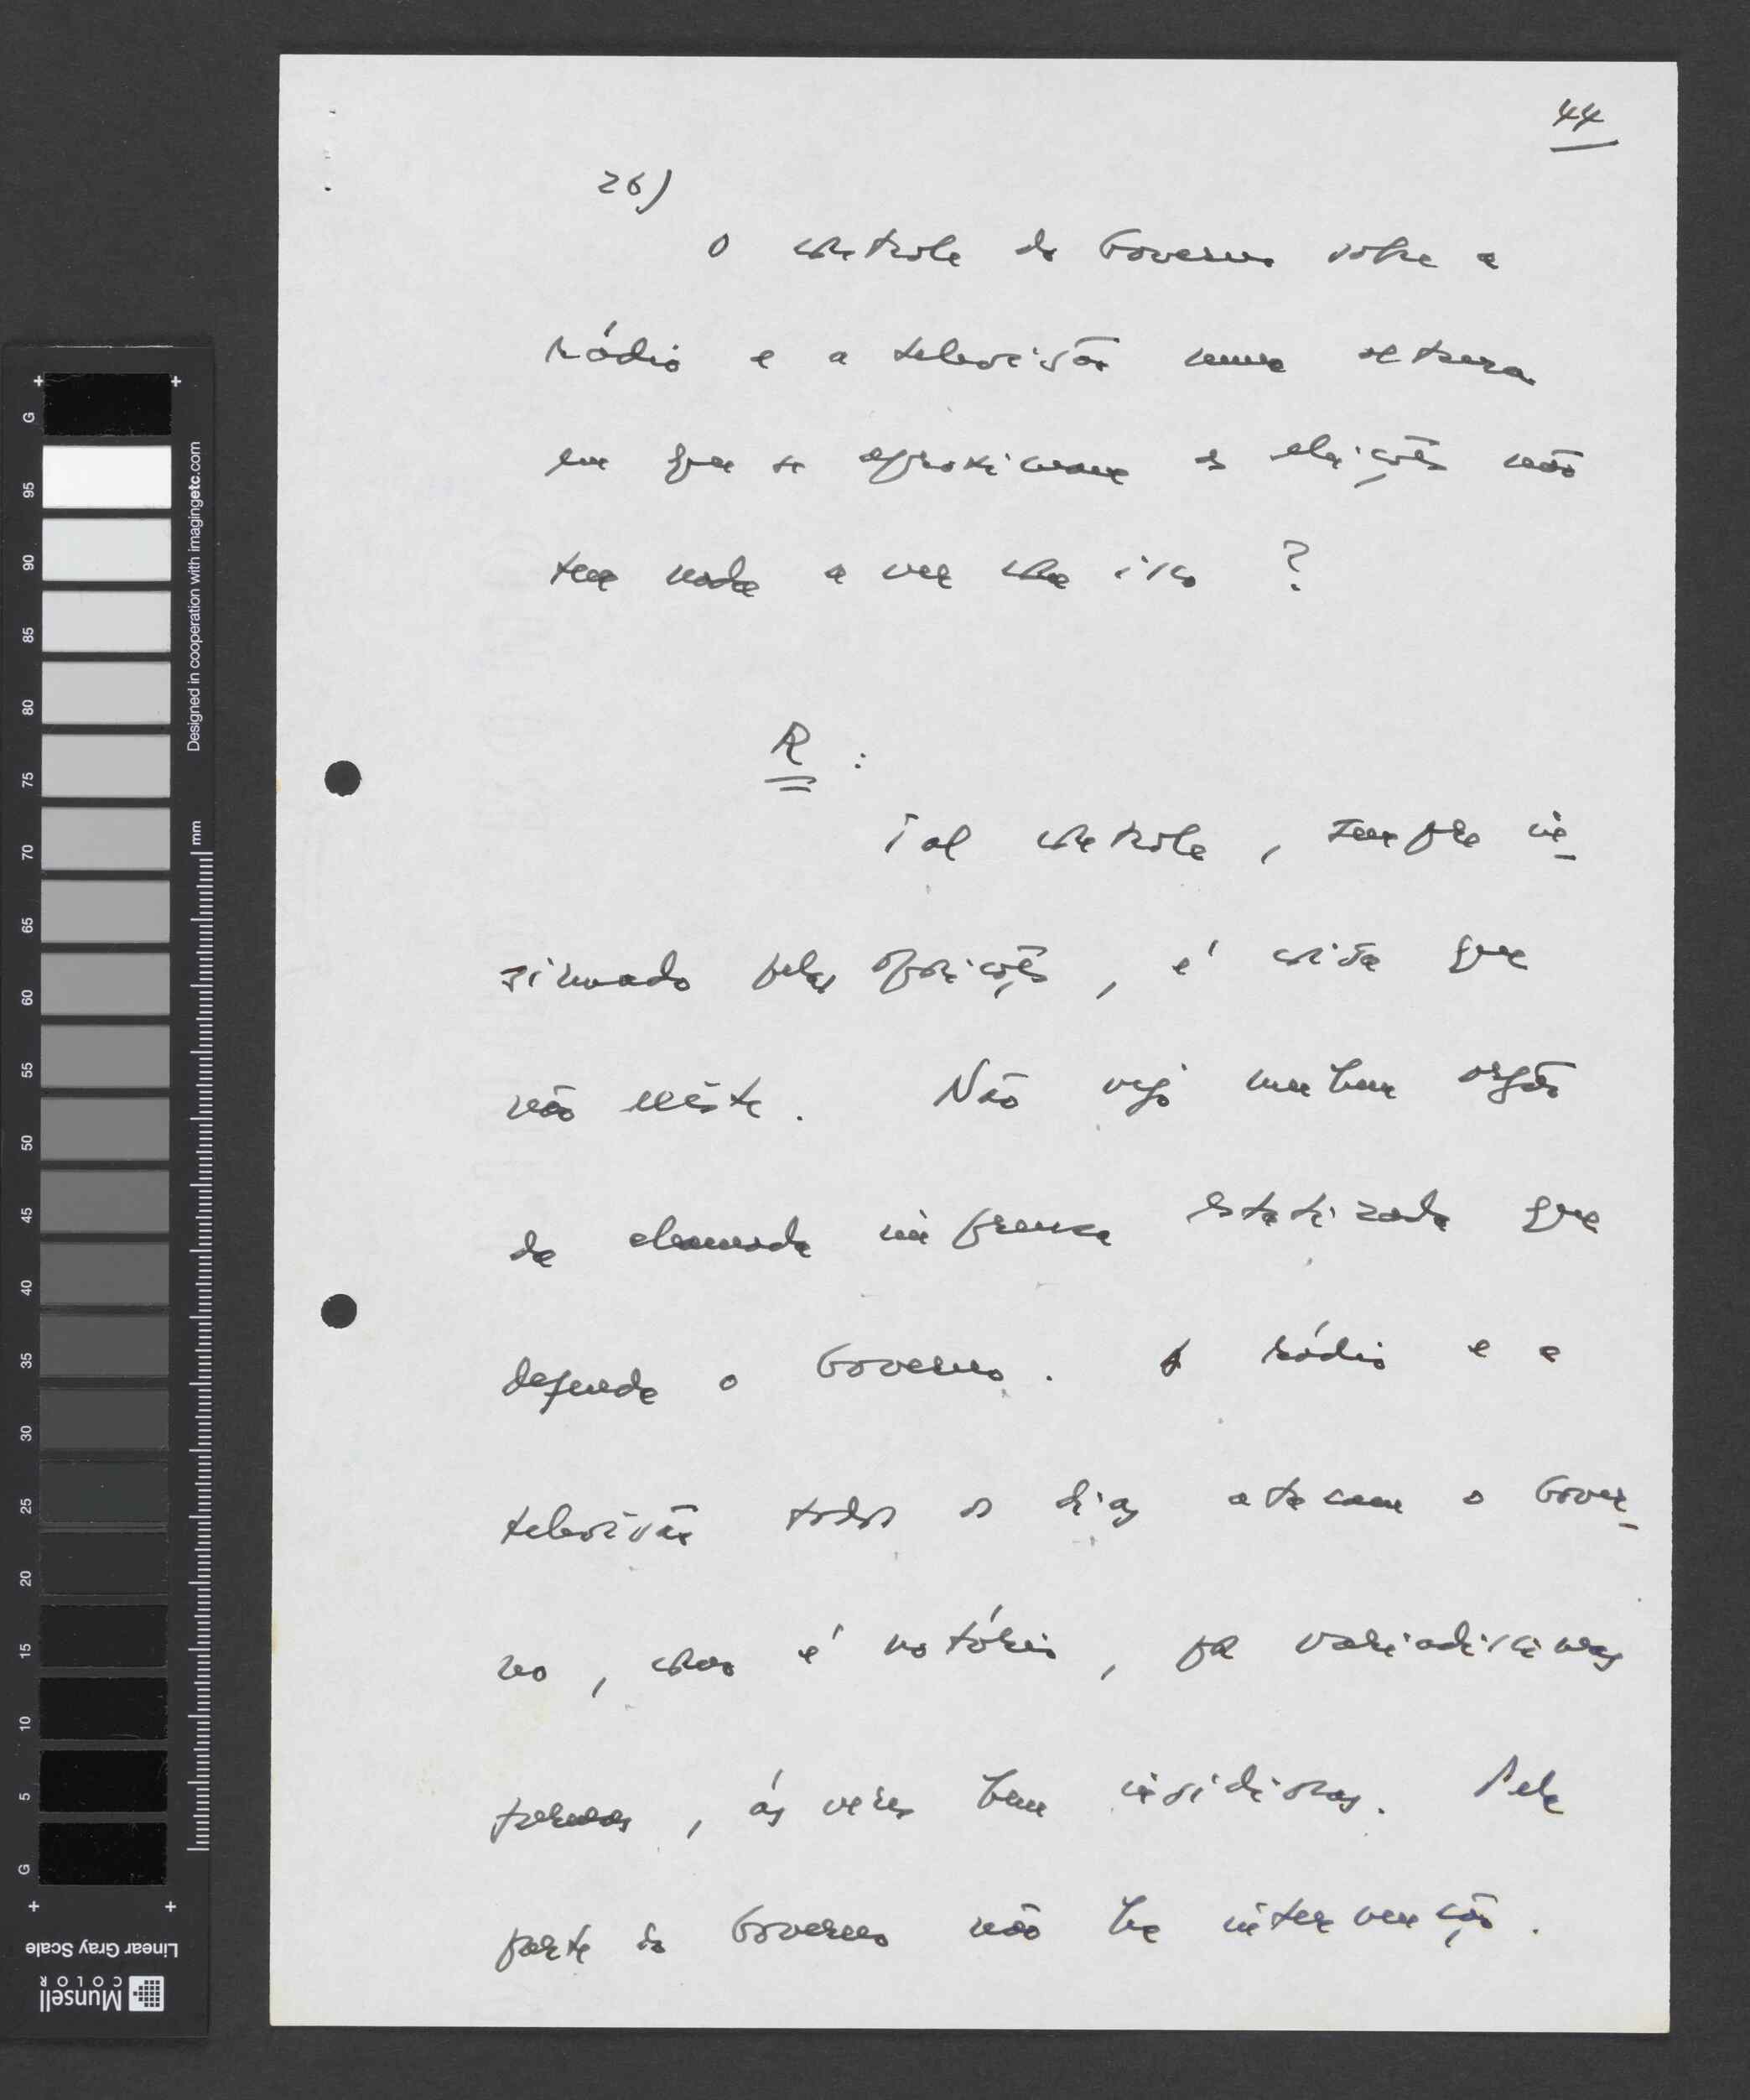 44
26)
O controle do Governo sobre a
rádio e a televisão numa altura
em que se aproximam as eleições não
tem nada a ver com isso ?
R :
Tal controle , sempre in-
sinuado pelas oposições , é coisa que
não existe . Não vejo nenhum orgão
da chamada imprensa estatizada que
defenda o Governo . A rádio e a
televisão todos os dias atacam o Gover-
no , como é notório , por variadissimas
formas , ás vezes bem insidiosas . Pela
parte do Governo não ha intervenção .
G
95
90
85
80
75
70
65
60
55
50
45
40
35
30
25
20
15
10
5
G
mm
Designed in cooperation with imagingetc.com
Linear Gray Scale
Munsell
COLOR